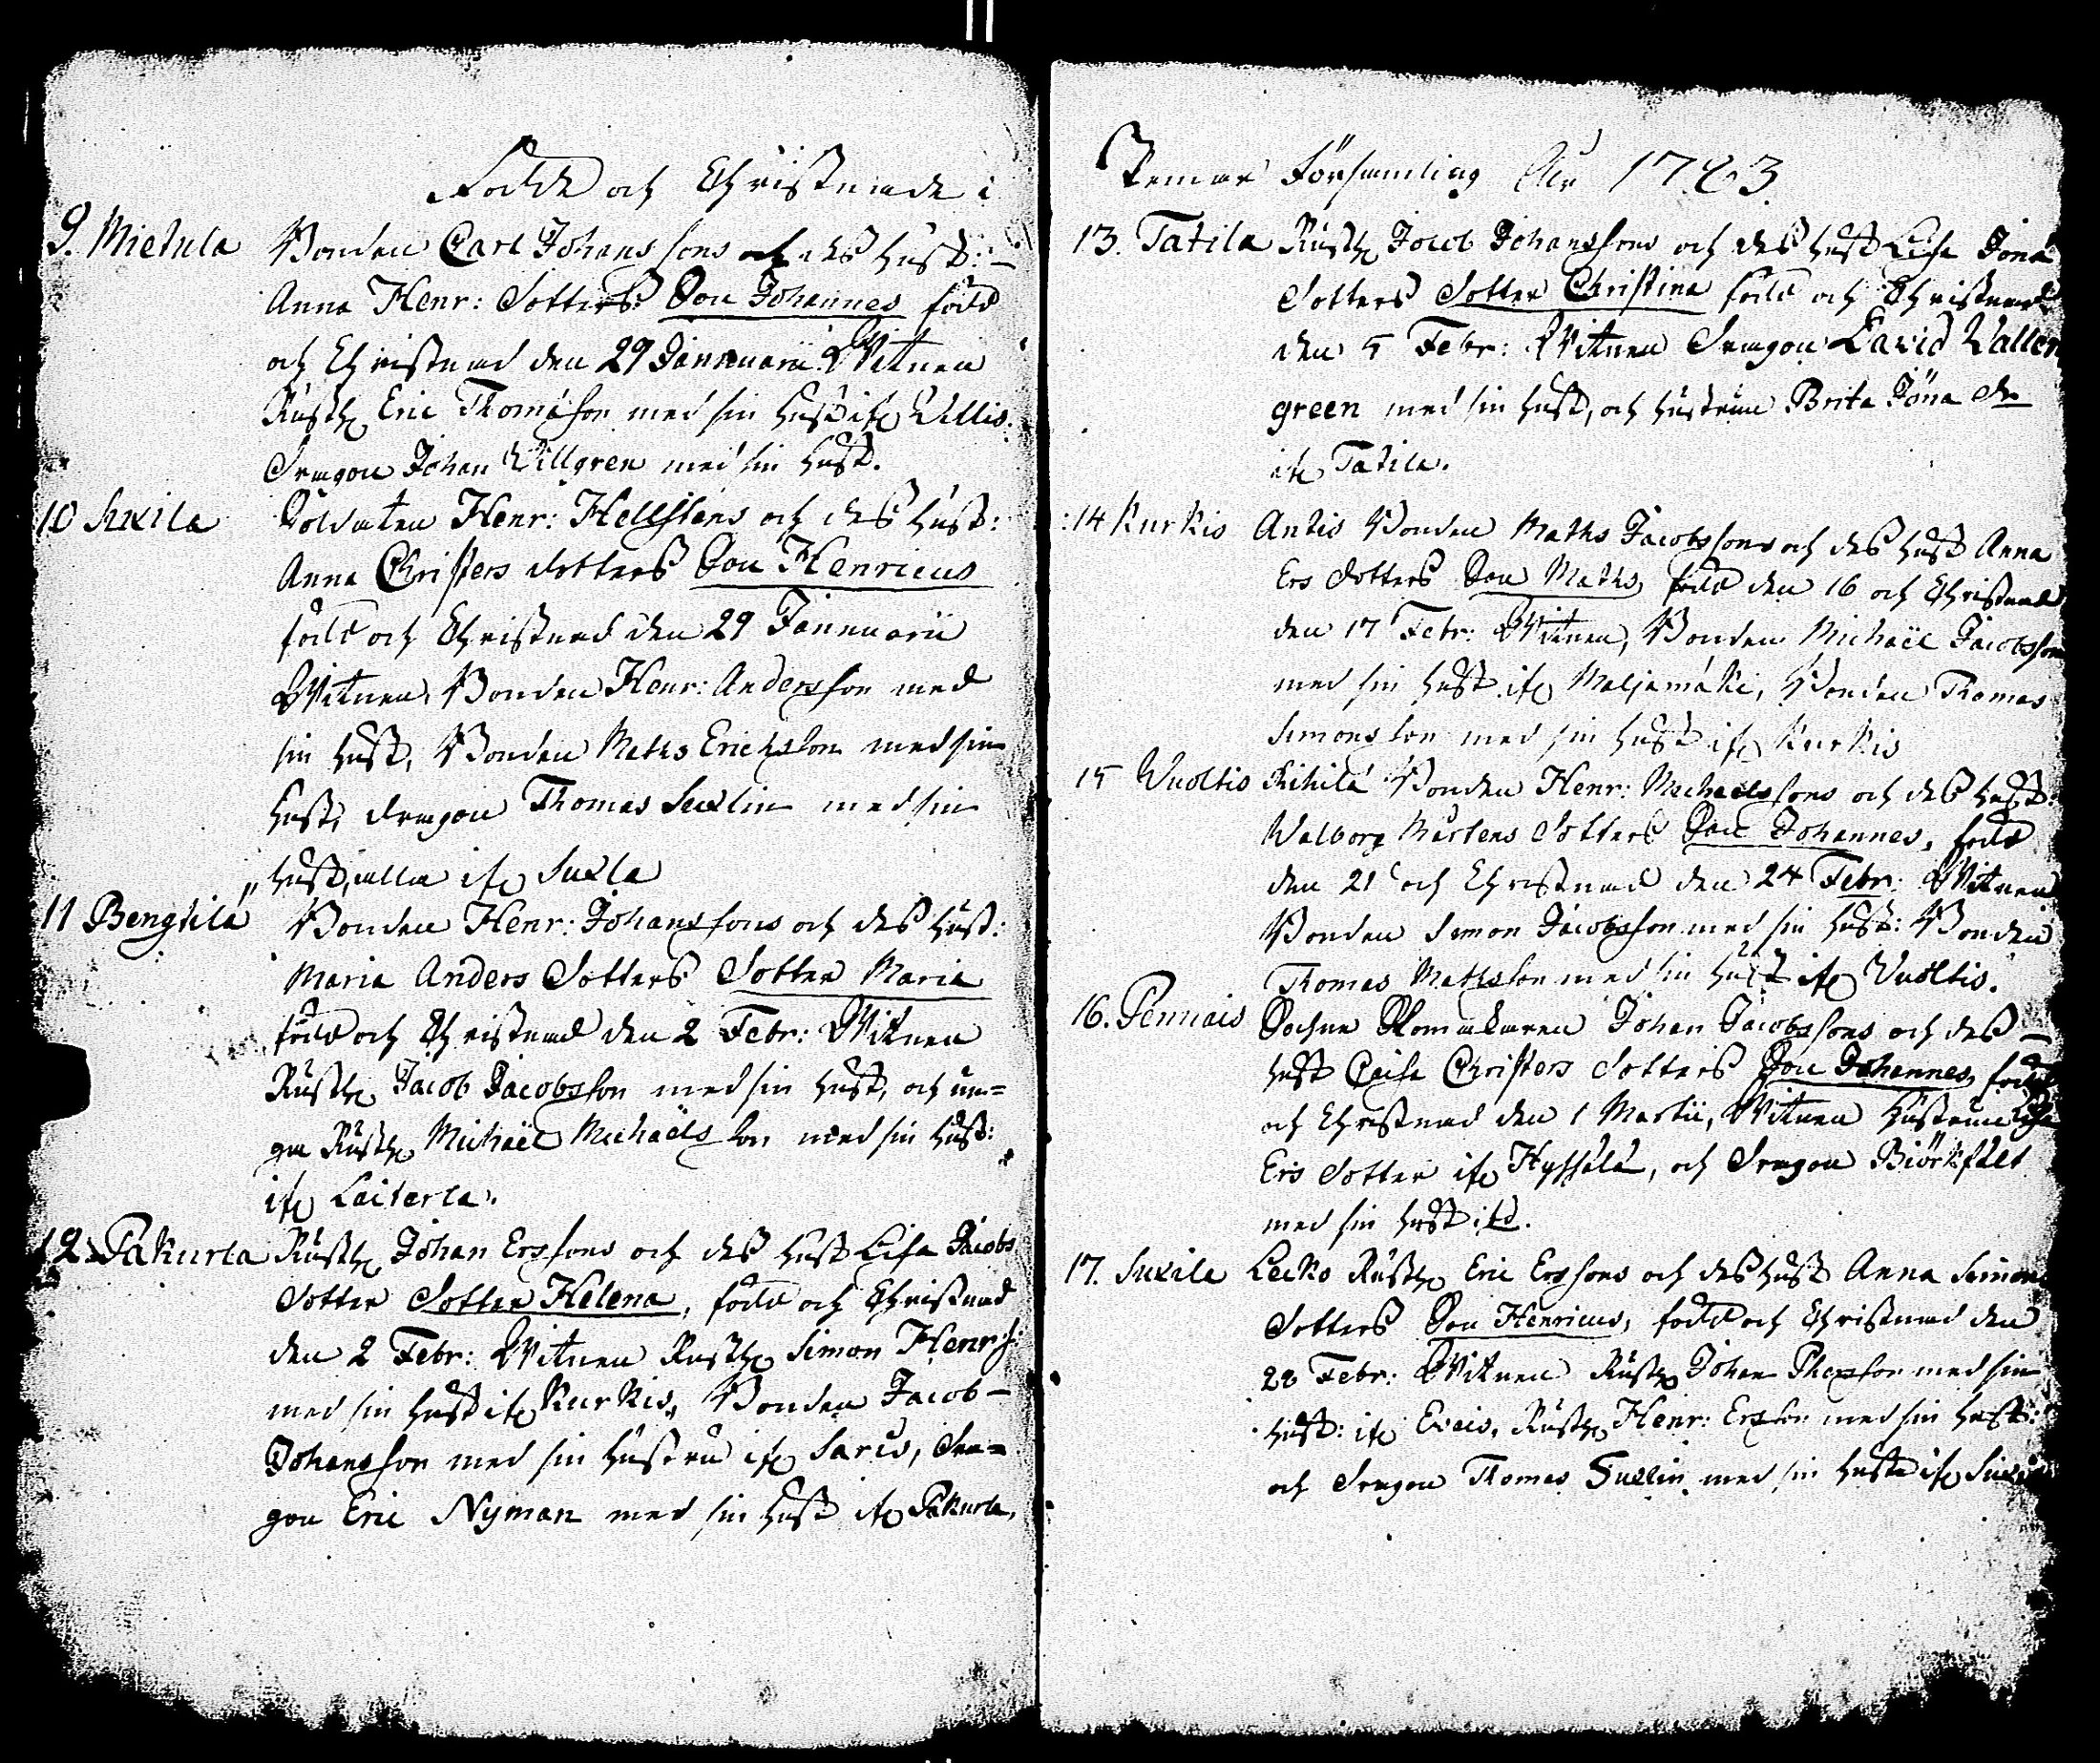 Födde och Christnade i
9. Mietula Bonden Carl Johans sons och des Hust:
Anna Henr: Dotters Son Johannes född
och Christnad den 29 Jannuarii. Witnen
Rusth Eric Thomæson med sin Hust if Willis.
Dragon Johan Willgren med sin Hust.
10 Suxila Soldaten Henr: Hellstens och des Hust:
Anna Christers dotters Son Henricus
född och Christnad den 29 Jannuarii
Witnen, Bonden Henr: Andersson med
sin Hust, Bonden Maths Erichsson med sin
Hust, dragon Thomas Suxlin med sin
Hust, alla if Suxla
11 Bengtilä Bonden Henr: Johanssons och des Hust:
Maria Anders Dotters Dotter Maria
född och Christnad den 2 Febr: Witnen
Rusth Jacob Jacobsson med sin Hust, och un=
ga Rusth Michaël Michaëls son med sin Hust:
if Laiterla.
12. Pakurla Rusth Johan Ers sons och des Hust Lisa Jacobs
Dotter Dotter Helena, född och Christnad
den 2 Febr: Witnen Rusth Simon Henr:s:
med sin Hust if Kurkis, Bonden Jacob
Johansson med sin Hustru if Saris, Dra=
gon Eric Nyman med sin Hust if Pakurla,
Pemar Församling Åhr 1783
13. Tatila Rusth Jacob Johanssons och des Hust Lisa Jona
Dotters Dotter Christina född och Christnad
den 5 Febr: Witnen Dragon David Wallen
green med sin Hust, och Hustrun Brita Jöna dr
if Tatila.
14 Kurkis Antis Bonden Maths Jacobs sons och des Hust Anna
Ers dotters Son Maths, född den 16 och Christnad
den 17 Febr: Witnen, Bonden Michaël Jacobsson
med sin Hust if Maljamäki, Bonden Thomas
Simons son med sin Hust if Kurkis
15 Wuoltis Rihilä Bonden Henr: Michaels sons och des Hust:
Walborg Mårtens Dotters Son Johannes, född
den 21 och Christnad den 24 Febr: Witnen
Bonden Simon Jacobsson med sin Hust: Bonden
Thomas Mathsson med sin Hust if Vuoltis.
16. Pennais Sockne Skomakaren Johan Jacobssons och des
Hust Caisa Christers Dotters Son Johannes, född
och Christnad den 1 Martii, Witnen Hustrun Lisa
Ers Dotter if Hyssälä, och Dragon Biörkfält
med sin Hust ibd.
17. Suxila Lecko Rusth Eric Ers sons och des Hust Anna Simons
Dotters Son Henricus, född och Christnad den
28 Febr: Witnen Rusth Johan Thosson med sin
Hust: if Eveis, Rusth Henr: Ersson med sin Hust:
och Dragon Thomas Suxlin med sin Hust if Suxi